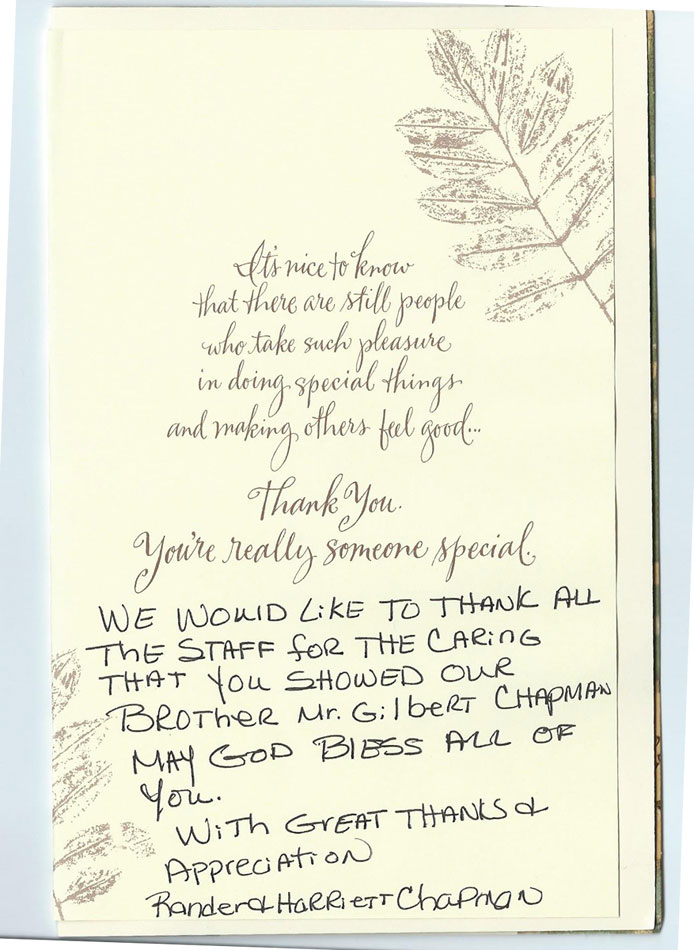 It's nice to know
that there are still people
who take such pleasure
in doing special things
and making others feel good...
Thank You.
You're really someone special.
WE WOULD LIKE TO THANK ALL
THE STAFF FOR THE CARING
THAT YOU SHOWED OUR
BROTHER Mr. GILBERT CHAPMAN
MAY GOD BLESS ALL OF
YOU.
WITH GREAT THANKS &
APPRECIATION
Rander & HARRIETT CHAPMAN